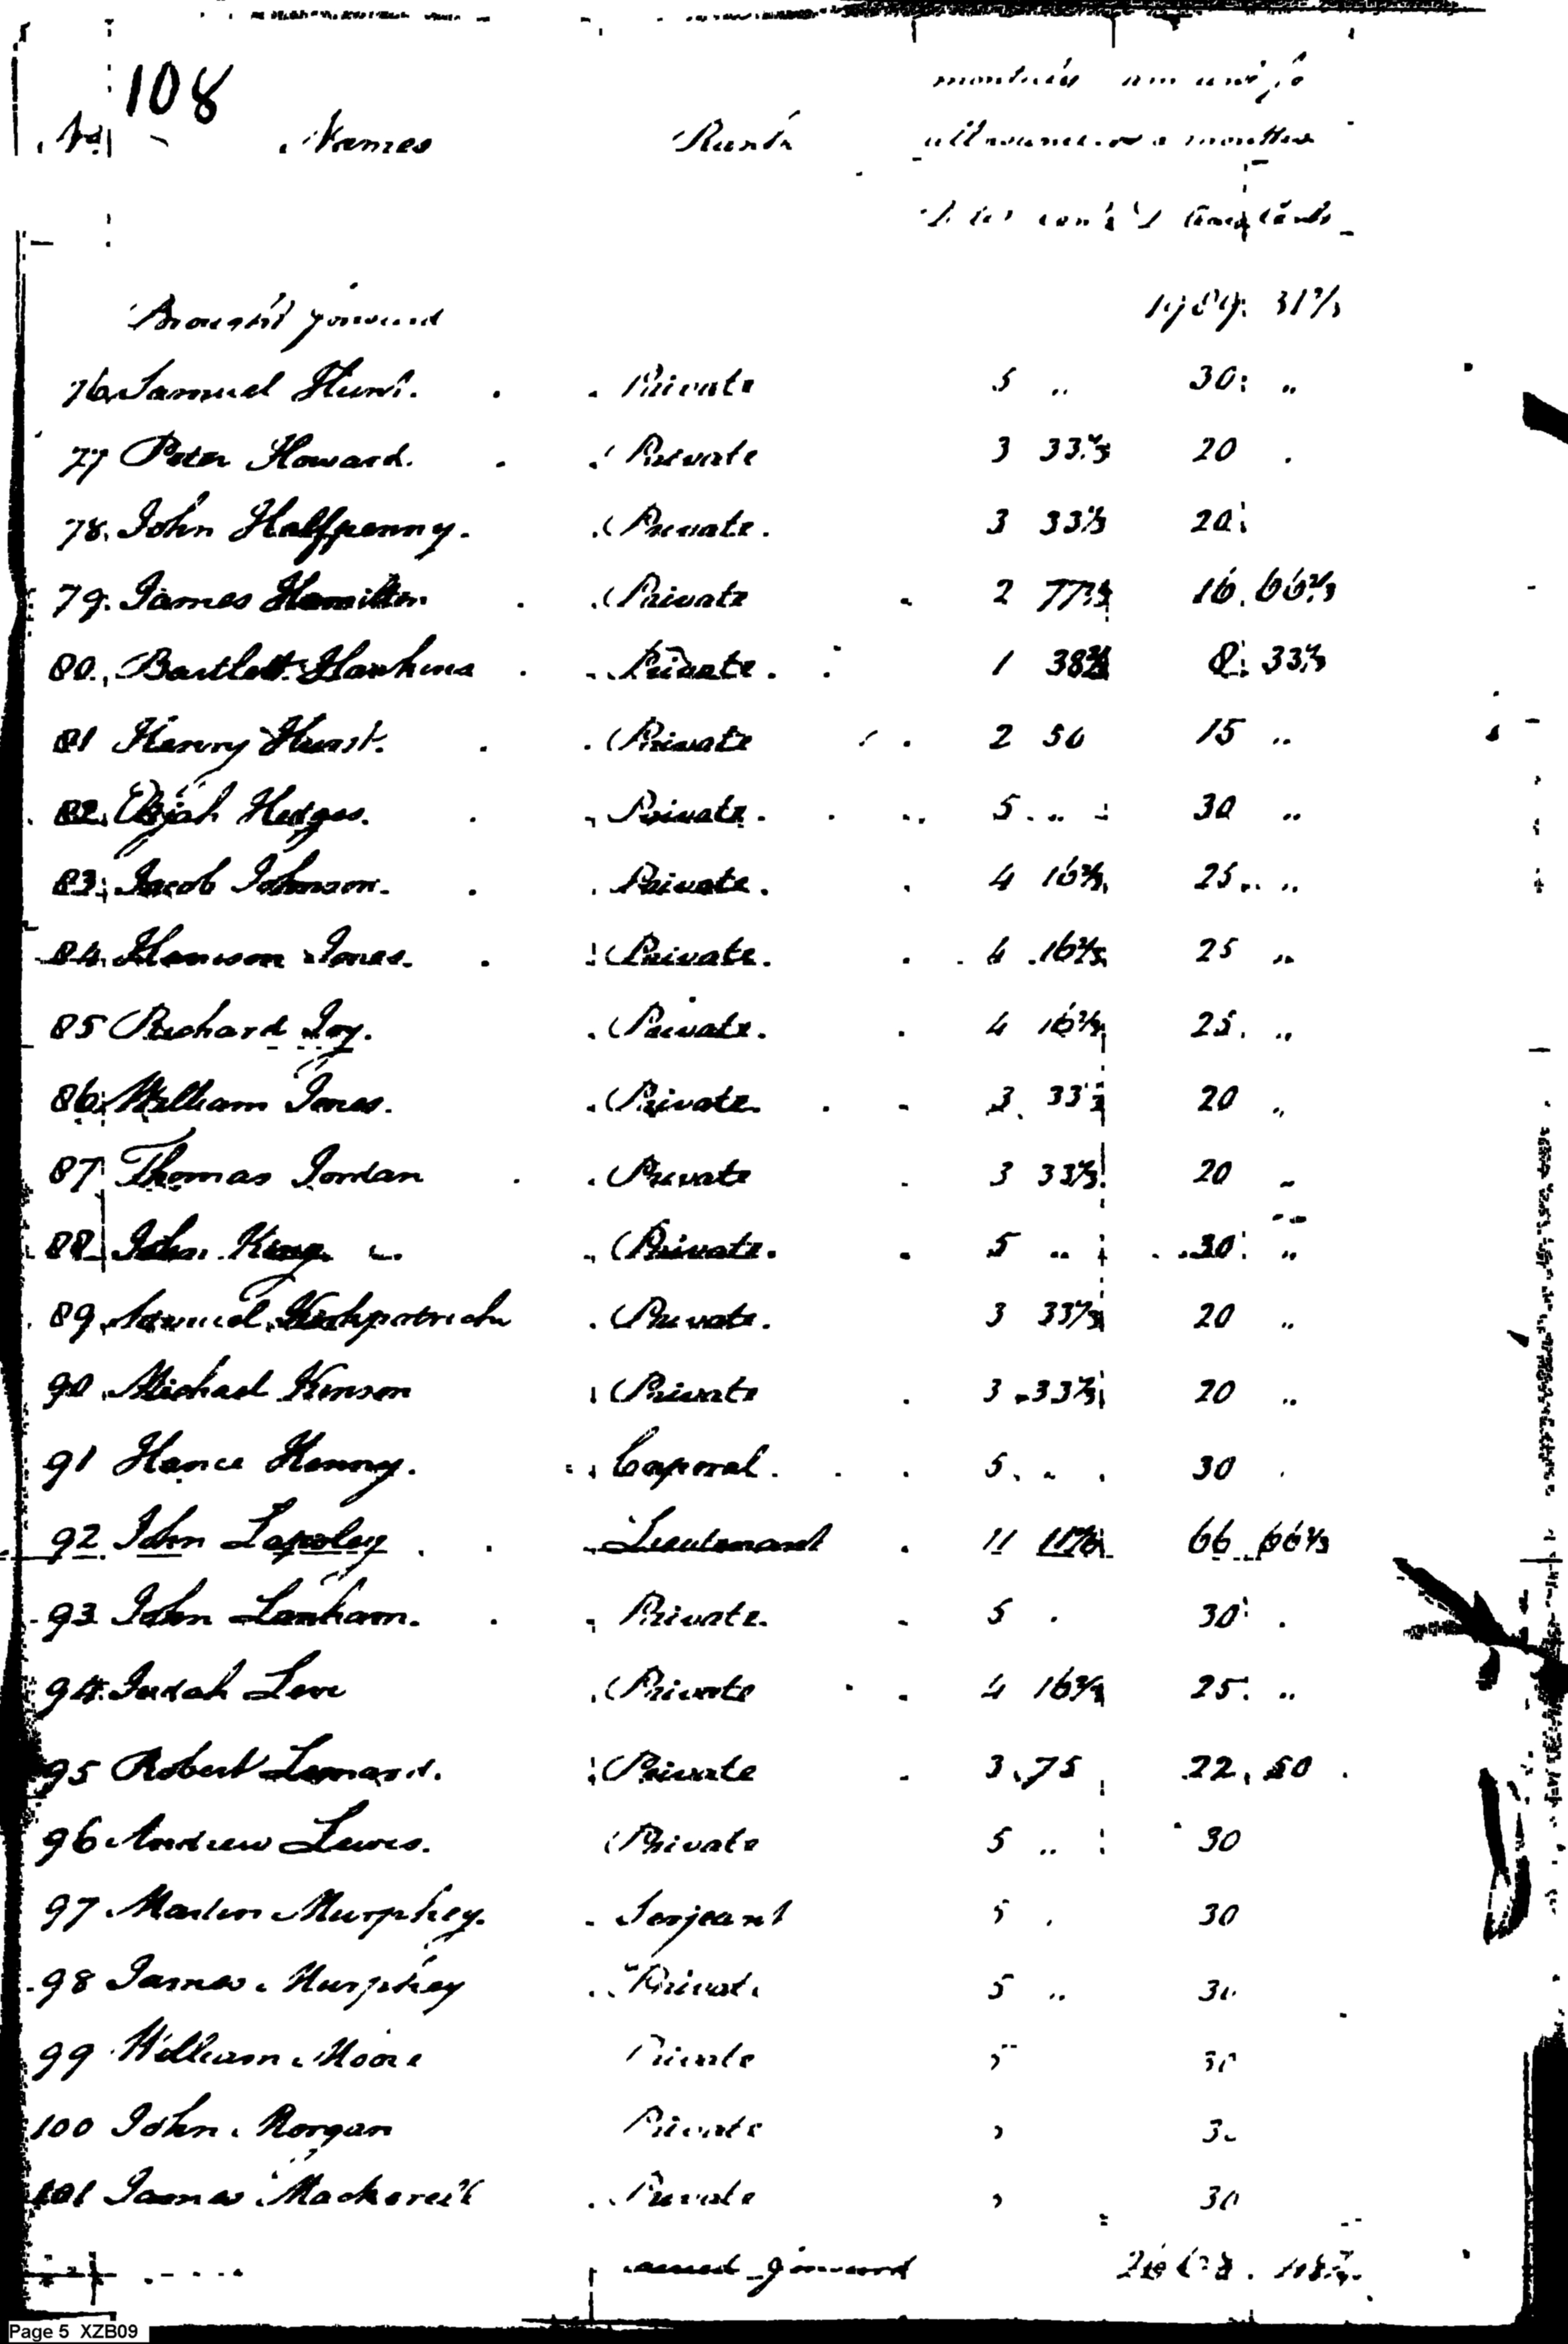 108
No Names Rank monthly am used for
allowance months
Brought forward 1989. 31 1/3
76 Samuel Hunt. Private 5 „ 30: „
77 Peter Howard. Private 3 33 1/3 20
78. John Halfpenny. Private. 3 33 1/3 20:
79. James Hamilton Private 2 77 16. 66 2/3
80. Bartlett Hawkins Private. 1 38 8: 33 1/3
81 Henry Hurst. Private 2 50 15 „
82. Elijah Hedges. Private. 5 „ 30 „
83. Jacob Johnson. Private. 4 16 2/3 25 „
84. Jones. Private. 4 16 2/3 25 „
85 Richard Joy. Private. 4 16 2/3 25. „
86. William Jones. Private. 3. 33 1/3 20 „
87 Thomas Jordan Private 3 33 1/3 20 „
88 John King Private. 5 „ 30: „
89 Samuel Kirkpatrick Private. 3 33 1/3 20 „
90. Michael Kenson Private 3 33 1/3 20 „
91 Hance Kenny. Corporal. 5. „ 30
92 John Lapsley Lieutenant 11 66 66 2/3
93 John Lanham. Private. 5 30:
94. Judah Leve Private 4 16 2/3 25. „
95 Robert Lenard. Private 3.75 22, 50
96 Andrew Lewis. Private 5 „ 30
97 Martin Murphey. Serjeant 5 30
98 James Murphey Private 5 „ 30
99 William Moore Private 5 30
100 John Morgan Private 30
101 James Mackerell Private 30
forward
Page 5 XZB09